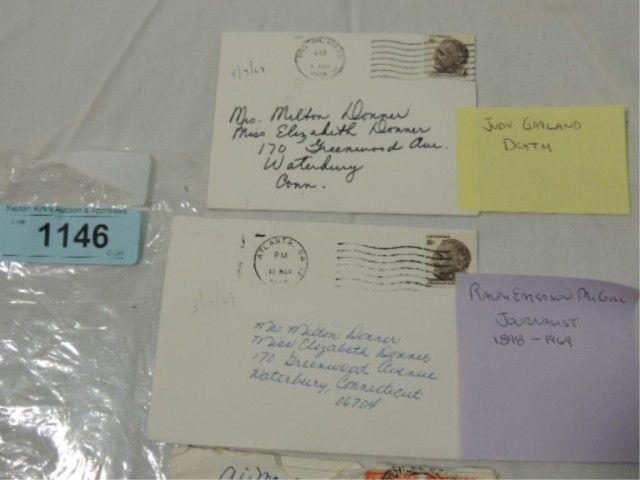 BOSTON, MASS.
AM
3/7/69
Mrs. Milton Donner
Miss Elizabeth Donner
170 Greenwood Ave.
Waterbury
Conn.
JUDY GARLAND
DEATH
Kaptain Kirk's Auction & Appraisals
1146
ATLANTA, GA
PM
11 MAR
6¢
3/13/69
Mrs Milton Donner
Miss Elizabeth Donner
170 Greenwood Avenue
Waterbury, Connecticut
06704
RALPH EMERSON McGILL
JOURNALIST
1898 - 1969